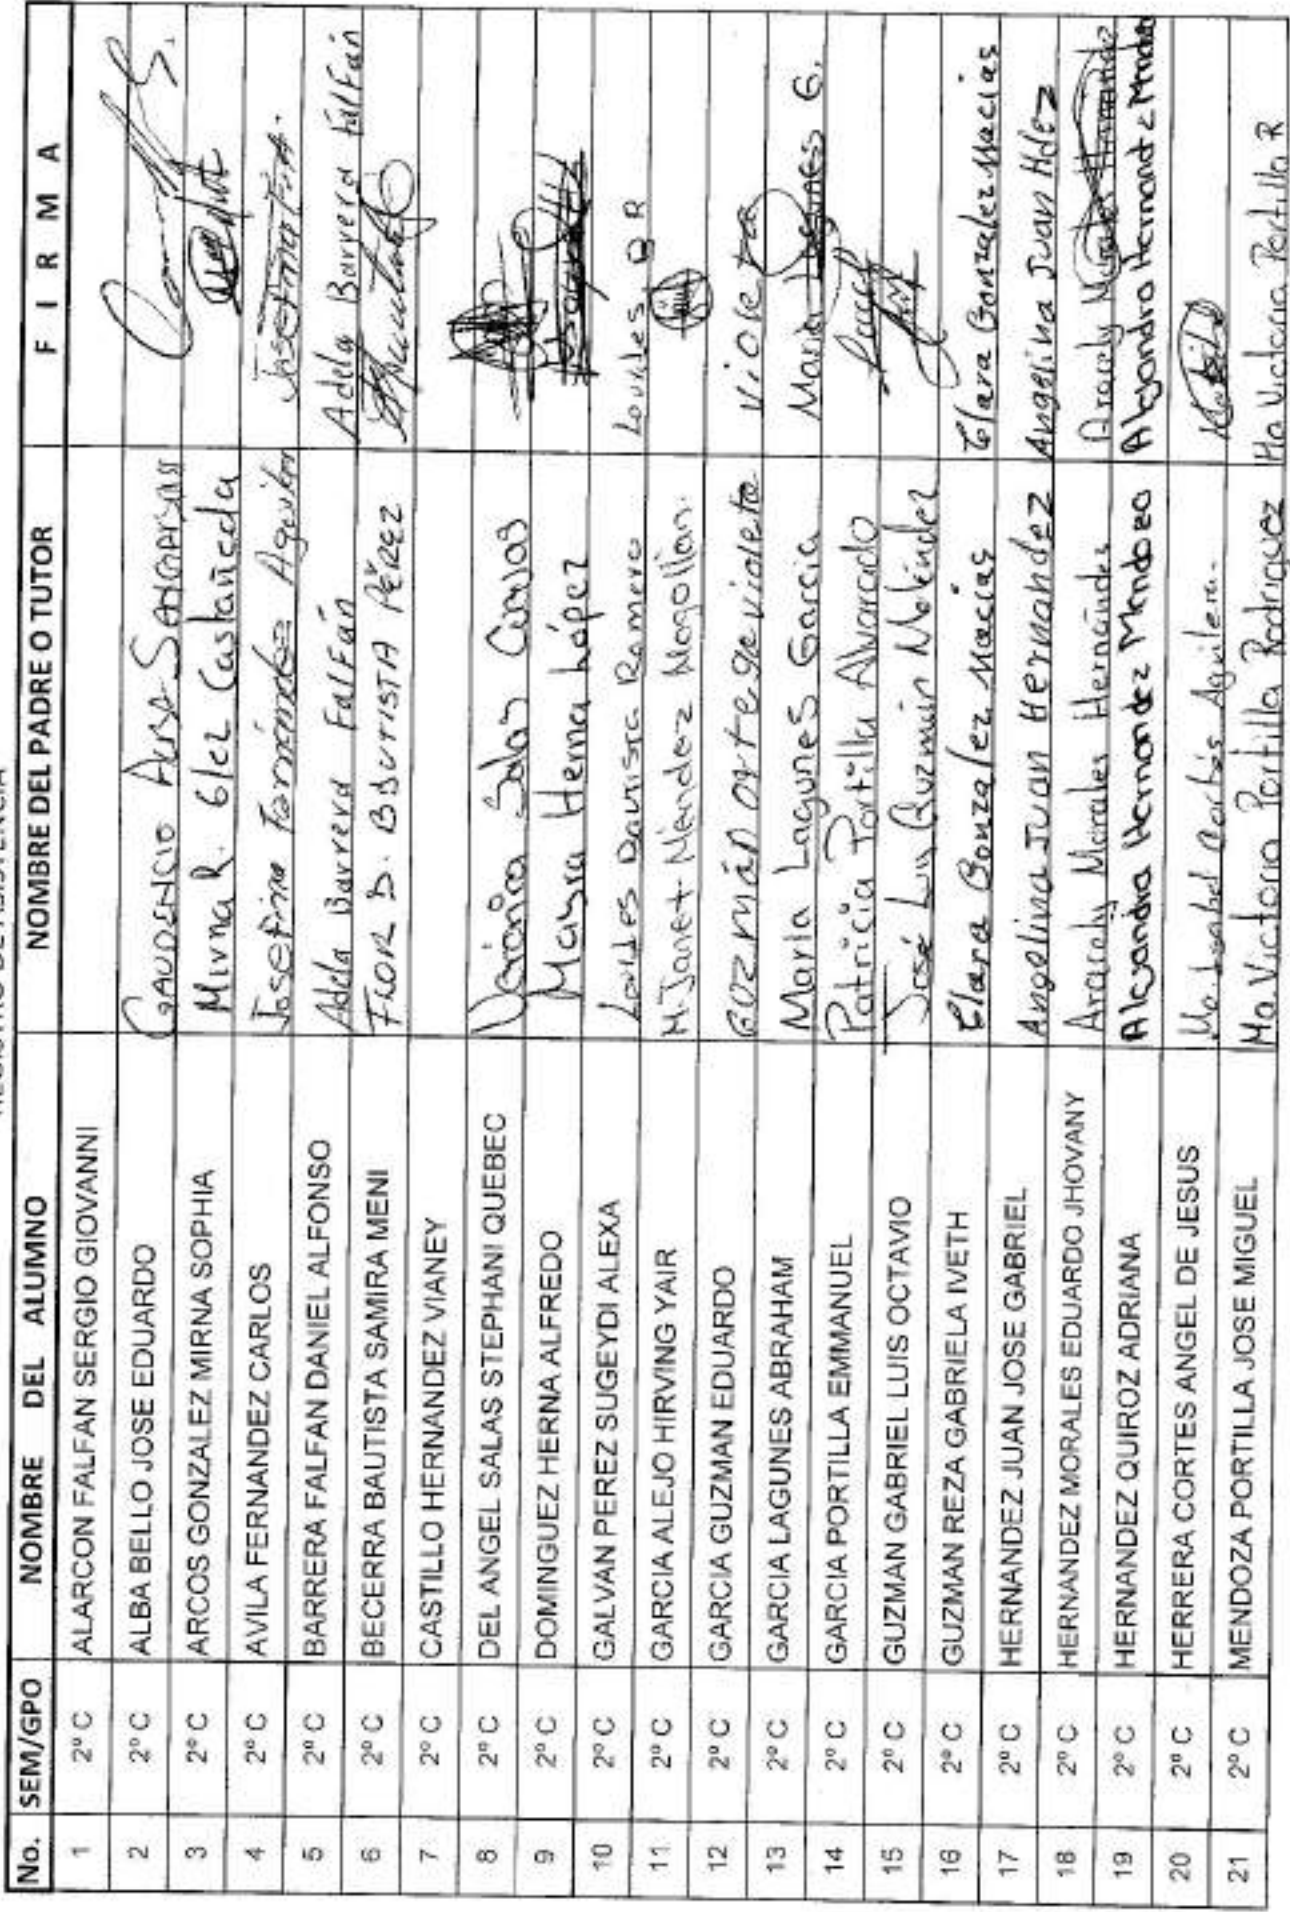 REGISTRO DE ASISTENCIA
No. SEM/GPO NOMBRE DEL ALUMNO NOMBRE DEL PADRE O TUTOR F I R M A
1 2º C ALARCON FALFAN SERGIO GIOVANNI
2 2º C ALBA BELLO JOSE EDUARDO GAUDENCIO ALBA
3 2º C ARCOS GONZALEZ MIRNA SOPHIA Mirna R. Glez Castañeda
4 2º C AVILA FERNANDEZ CARLOS Josefina Fernández Aguilar Josefina F.A.
5 2º C BARRERA FALFAN DANIEL ALFONSO Adela Barrera Falfán Adela Barrera Falfán
6 2º C BECERRA BAUTISTA SAMIRA MENI FLOR D. BAUTISTA PÉREZ
7 2º C CASTILLO HERNANDEZ VIANEY
8 2º C DEL ANGEL SALAS STEPHANI QUEBEC Salas
9 2º C DOMINGUEZ HERNA ALFREDO Mayra Herna López
10 2º C GALVAN PEREZ SUGEYDI ALEXA Ramero
11 2º C GARCIA ALEJO HIRVING YAIR M. Janet Méndez
12 2º C GARCIA GUZMAN EDUARDO Guzmán ortega violeta violeta
13 2º C GARCIA LAGUNES ABRAHAM María Lagunes Garcia María Lagunes G.
14 2º C GARCIA PORTILLA EMMANUEL Patricia Portilla Alvarado
15 2º C GUZMAN GABRIEL LUIS OCTAVIO José Luis Guzmán Meléndez
16 2º C GUZMAN REZA GABRIELA IVETH Clara Gonzalez Macias Clara Gonzalez Macias
17 2º C HERNANDEZ JUAN JOSE GABRIEL Angelina JUAN HERNANDEZ Angelina Juan Hdez
18 2º C HERNANDEZ MORALES EDUARDO JHOVANY Aracely Morales Hernández Aracely Morales Hernández
19 2º C HERNANDEZ QUIROZ ADRIANA Alejandra Hernandez Mendoza Alejandra Hernandez Mendoza
20 2º C HERRERA CORTES ANGEL DE JESUS Ma. Isabel Cortés Aguilera
21 2º C MENDOZA PORTILLA JOSE MIGUEL Ma. Victoria Portilla Rodriguez Ma Victoria Portilla R